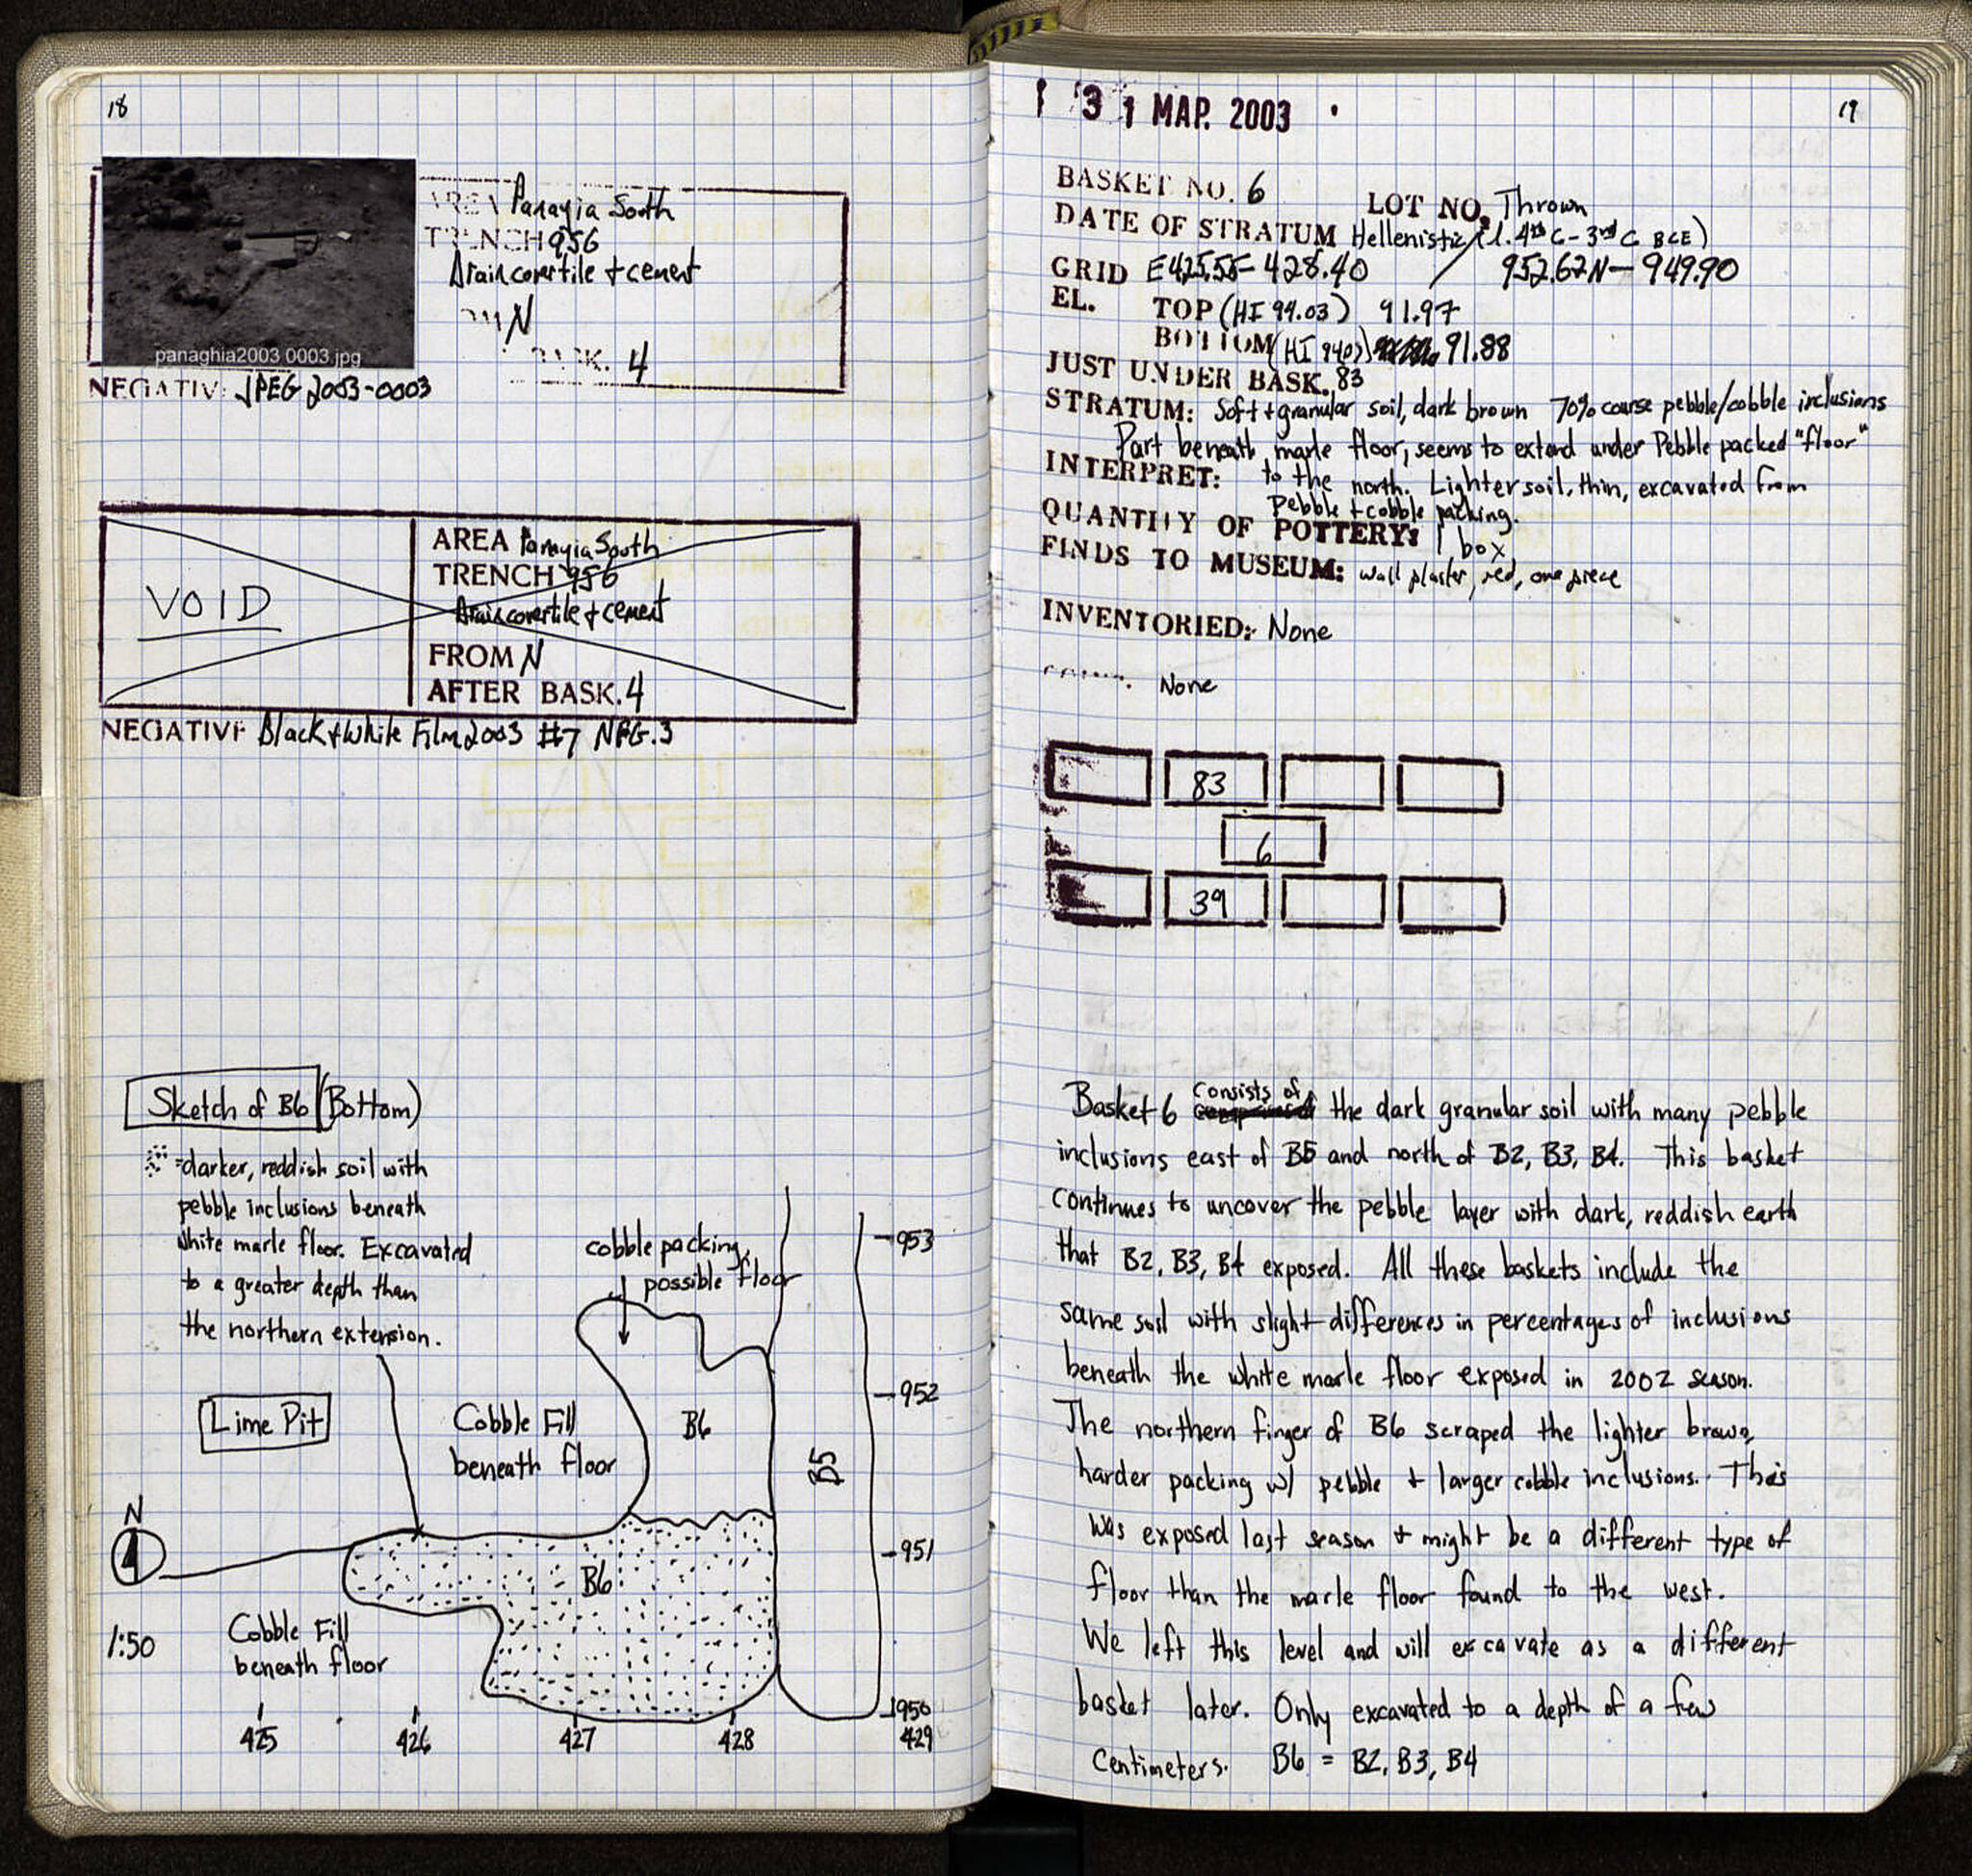 18
AREA Panayia South
TRENCH 956
Drain cover tile + cement
N
BASK. 4
panaghia2003 0003.jpg
NEGATIV: JPEG 2003-0003
VOID
AREA Panayia South
TRENCH 956
Drain cover tile + cement
FROM N
AFTER BASK. 4
NEGATIVE Black + White Film 2003 #7 NEG. 3
Sketch of B6 (Bottom)
= darker, reddish soil with
pebble inclusions beneath
white marle floor. Excavated
to a greater depth than
the northern extension.
cobble packing,
possible floor
953
952
951
950
Lime Pit
Cobble Fill
beneath floor
B6
B5
N
B6
1:50
Cobble Fill
beneath floor
425
426
427
428
429
31 MAP. 2003
19
BASKET NO. 6
LOT NO. Thrown
DATE OF STRATUM Hellenistic (l. 4th C - 3rd C BCE)
GRID E425.55 - 428.40 / 952.62N - 949.90
EL. TOP (HI 94.03) 91.97
BOTTOM (HI 9403) 91.88
JUST UNDER BASK. 83
STRATUM: Soft + granular soil, dark brown 70% course pebble/cobble inclusions
Part beneath marle floor, seems to extend under Pebble packed "floor"
INTERPRET: to the north. Lighter soil, thin, excavated from
Pebble + cobble packing.
QUANTITY OF POTTERY: 1 box
FINDS TO MUSEUM: wall plaster, red, one piece
INVENTORIED: None
None
83
6
39
Basket 6 consists of the dark granular soil with many pebble
inclusions east of B5 and north of B2, B3, B4. This basket
continues to uncover the pebble layer with dark, reddish earth
that B2, B3, B4 exposed. All these baskets include the
same soil with slight differences in percentages of inclusions
beneath the white marle floor exposed in 2002 season.
The northern finger of B6 scraped the lighter brown,
harder packing w/ pebble + larger cobble inclusions. This
was exposed last season + might be a different type of
floor than the marle floor found to the west.
We left this level and will excavate as a different
basket later. Only excavated to a depth of a few
Centimeters. B6 = B2, B3, B4